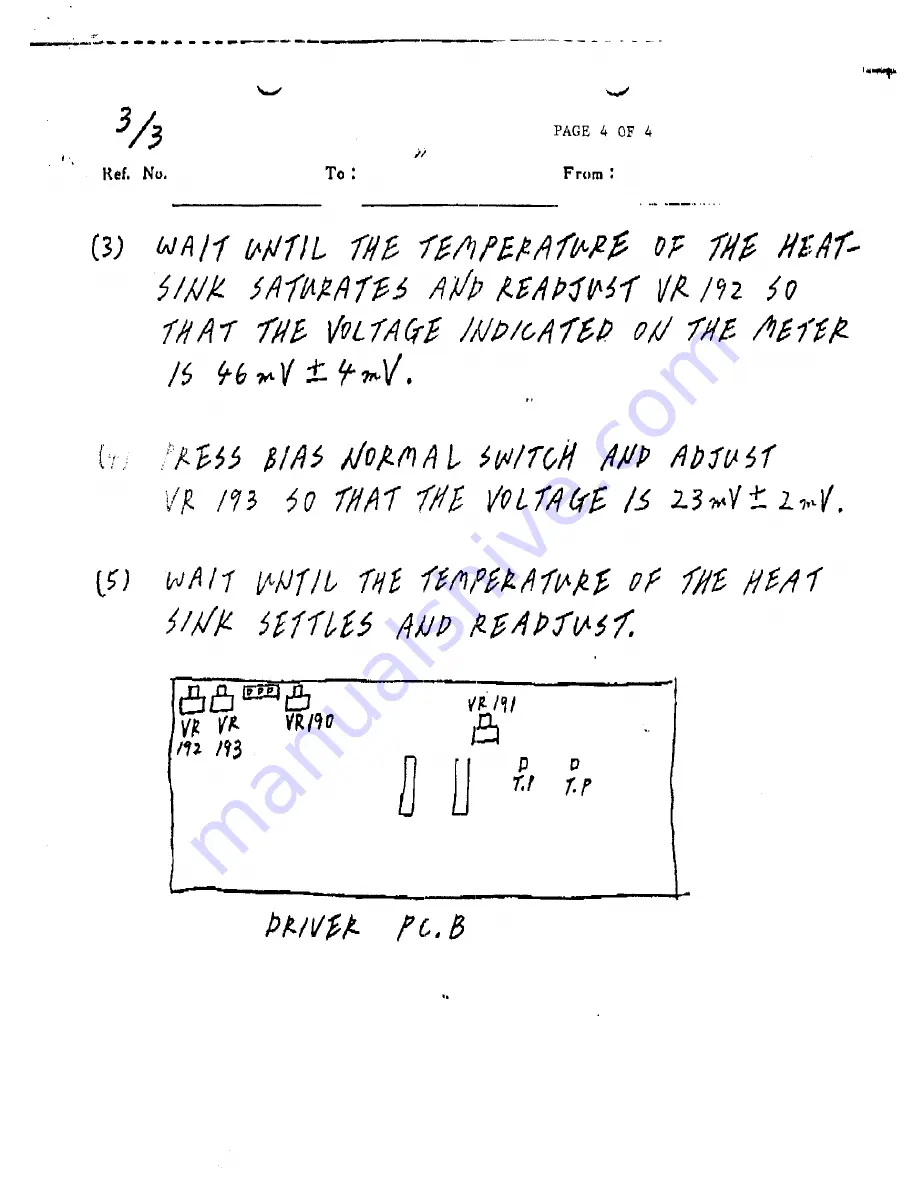 3/3
PAGE 4 OF 4
Ref. No. To: From:
(3) WAIT UNTIL THE TEMPERATURE OF THE HEAT-
SINK SATURATES AND READJUST VR 192 SO
THAT THE VOLTAGE INDICATED ON THE METER
IS 46mV ± 4mV.
(4) PRESS BIAS NORMAL SWITCH AND ADJUST
VR 193 SO THAT THE VOLTAGE IS 23mV ± 2mV.
(5) WAIT UNTIL THE TEMPERATURE OF THE HEAT
SINK SETTLES AND READJUST.
VR 192
VR 193
VR190
VR191
T.P
T.P
DRIVER PC.B
manualshive.com